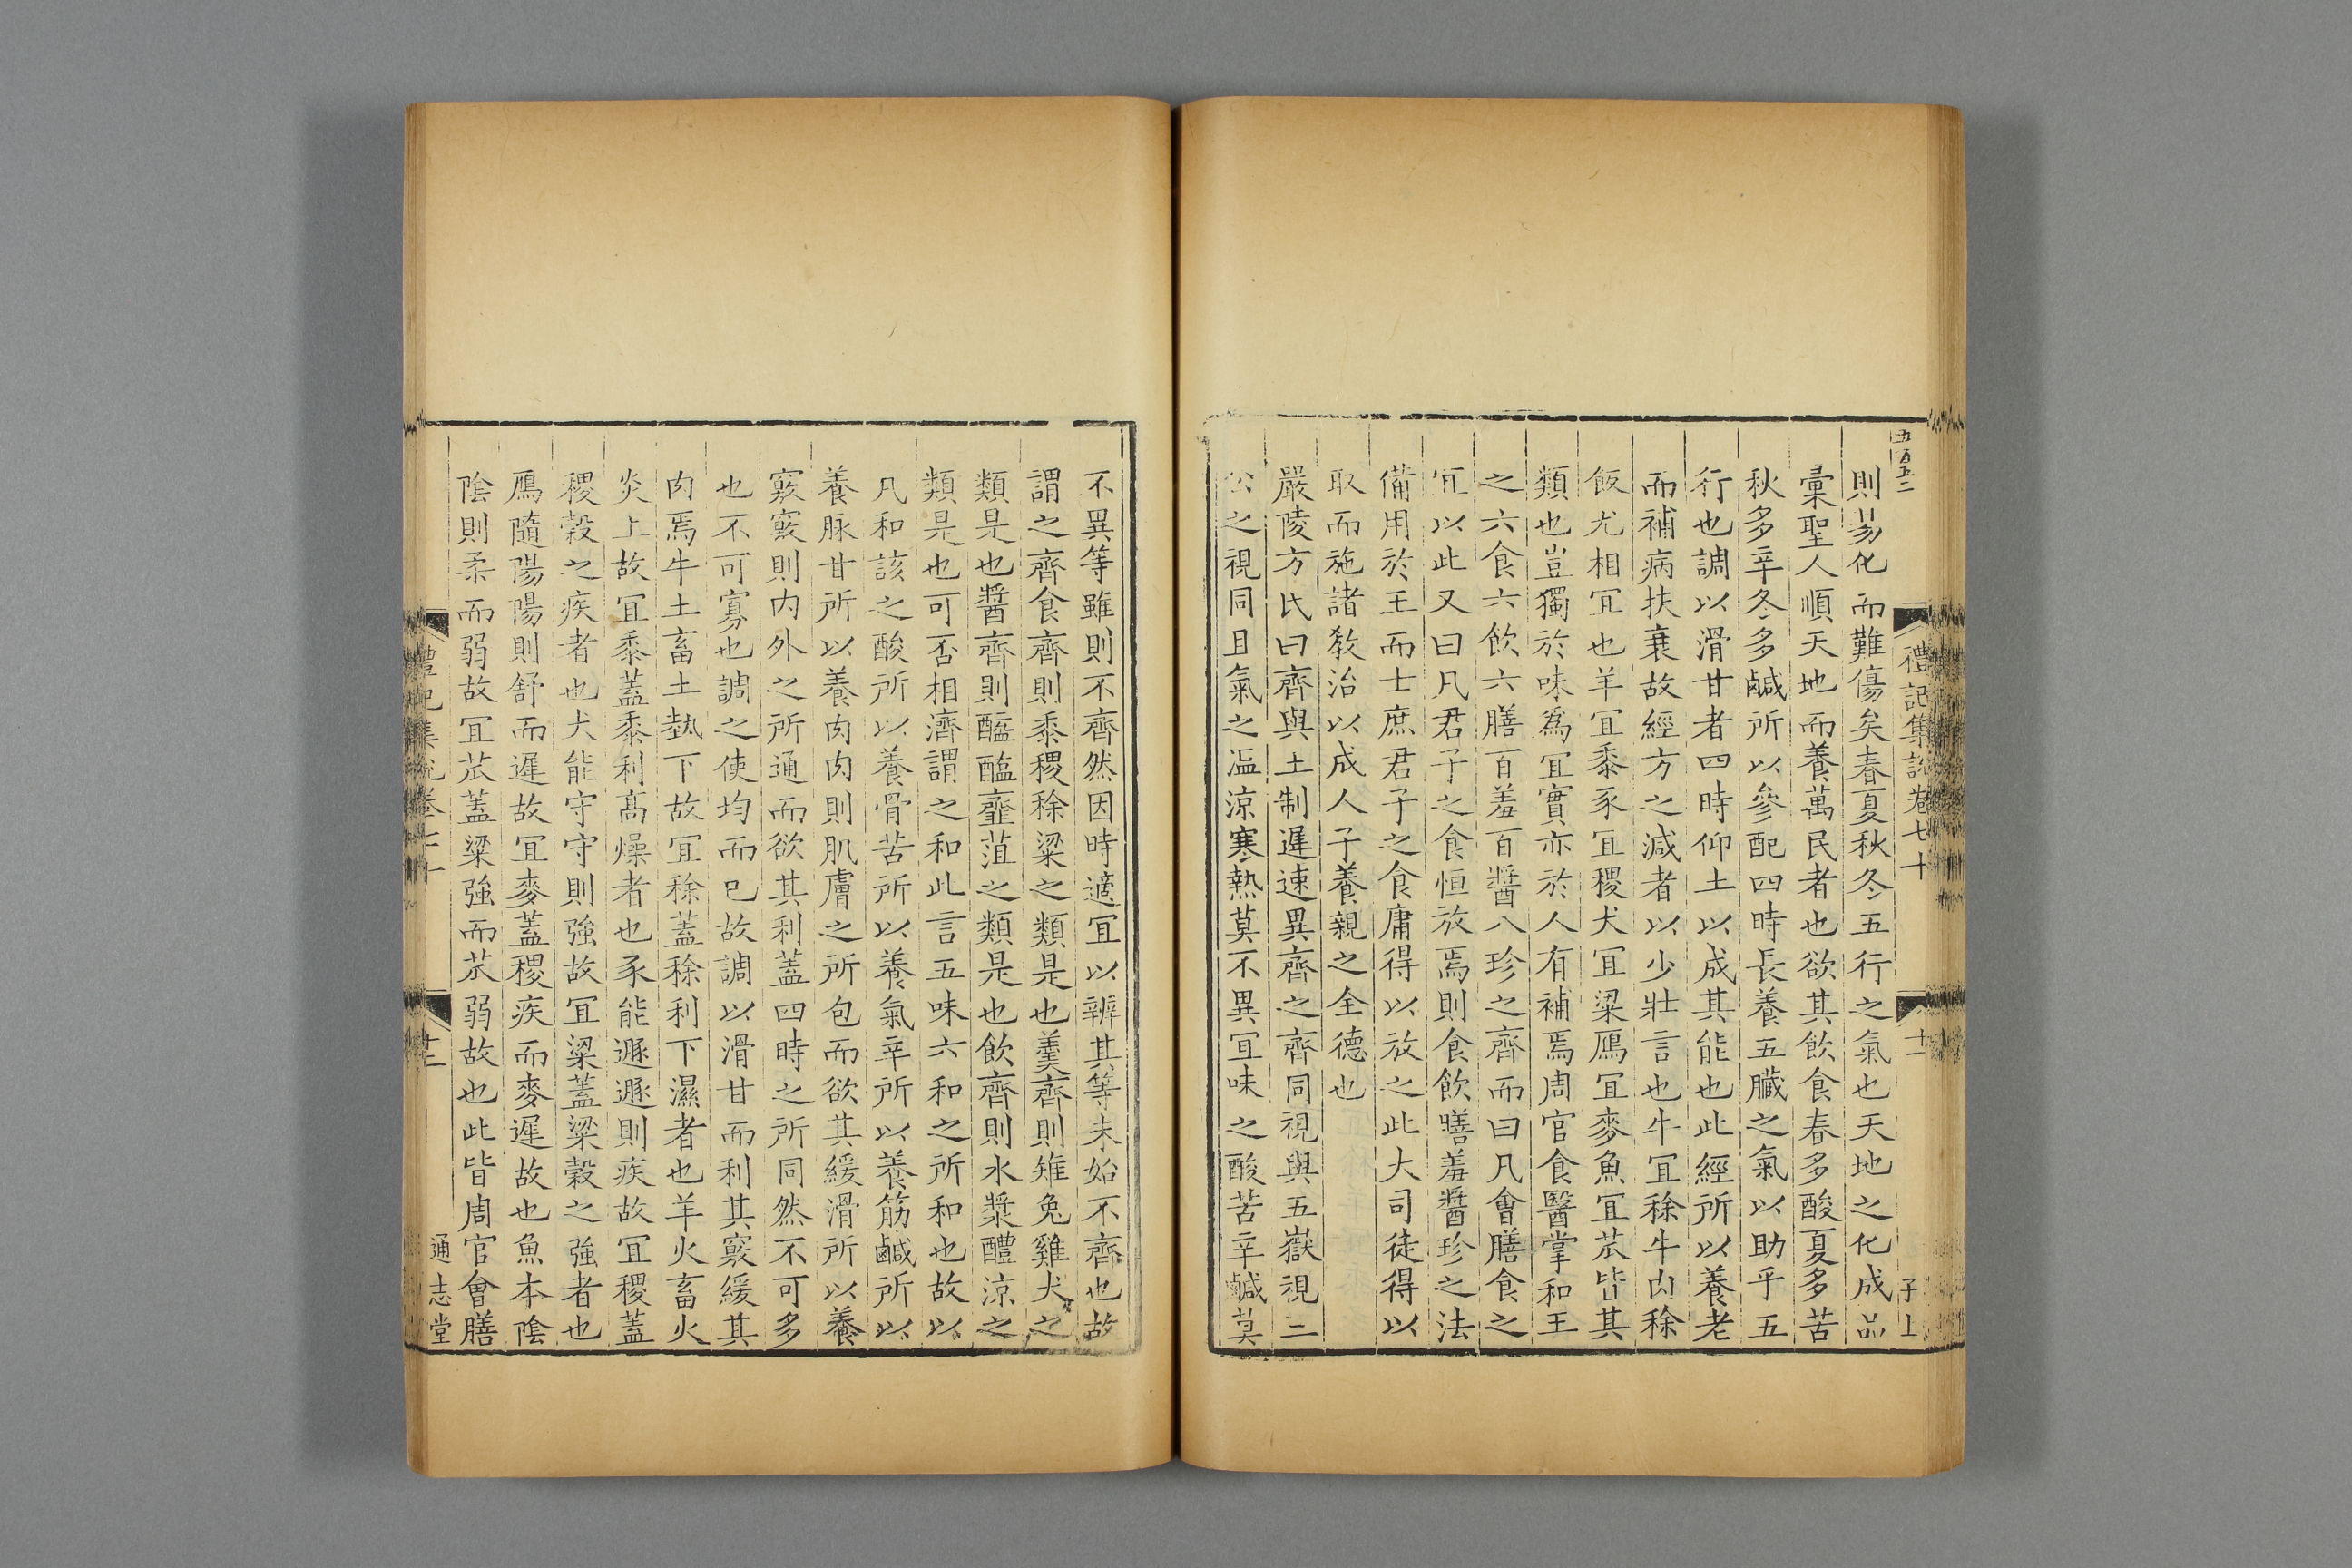 五百五二
則易化而難傷矣春夏秋冬五行之氣也天地之化成品
彙聖人順天地而養萬民者也欲其飲食春多酸夏多苦
秋多辛冬多鹹所以參配四時長養五臟之氣以助乎五
行也調以滑甘者四時仰土以成其能也此經所以養老
而補病扶衰故經方之減者以少壯言也牛宜稌牛肉稌
飯尤相宜也羊宜黍豕宜稷犬宜粱鴈宜麥魚宜苽皆其
類也豈獨於味為宜實亦於人有補焉周官食醫掌和王
之六食六飲六膳百羞百醬八珍之齊而曰凡會膳食之
宜以此又曰凡君子之食恒放焉則食飲膳羞醬珍之法
備用於王而士庶君子之食庸得以放之此大司徒得以
取而施諸教治以成人子養親之全德也
嚴陵方氏曰齊與土制遲速異齊之齊同視與五嶽視三
公之視同且氣之温涼寒熱莫不異宜味之酸苦辛鹹莫
禮記集說卷七十
十一
子上
不異等雖則不齊然因時適宜以辨其等未始不齊也故
謂之齊食齊則黍稷稌粱之類是也羹齊則雉兔雞犬之
類是也醬齊則醢醯虀菹之類是也飲齊則水漿醴涼之
類是也可否相濟謂之和此言五味六和之所和也故以
凡和該之酸所以養骨苦所以養氣辛所以養筋鹹所以
養脉甘所以養肉肉則肌膚之所包而欲其緩滑所以養
竅竅則内外之所通而欲其利蓋四時之所同然不可多
也不可寡也調之使均而已故調以滑甘而利其竅緩其
肉焉牛土畜土埶下故宜稌蓋稌利下濕者也羊火畜火
炎上故宜黍蓋黍利高燥者也豕能遯遯則疾故宜稷蓋
稷穀之疾者也犬能守守則強故宜粱蓋粱穀之強者也
鴈隨陽陽則舒而遲故宜麥蓋稷疾而麥遲故也魚本陰
陰則柔而弱故宜苽蓋粱強而苽弱故也此皆周官會膳
禮記集說卷七十
通志堂